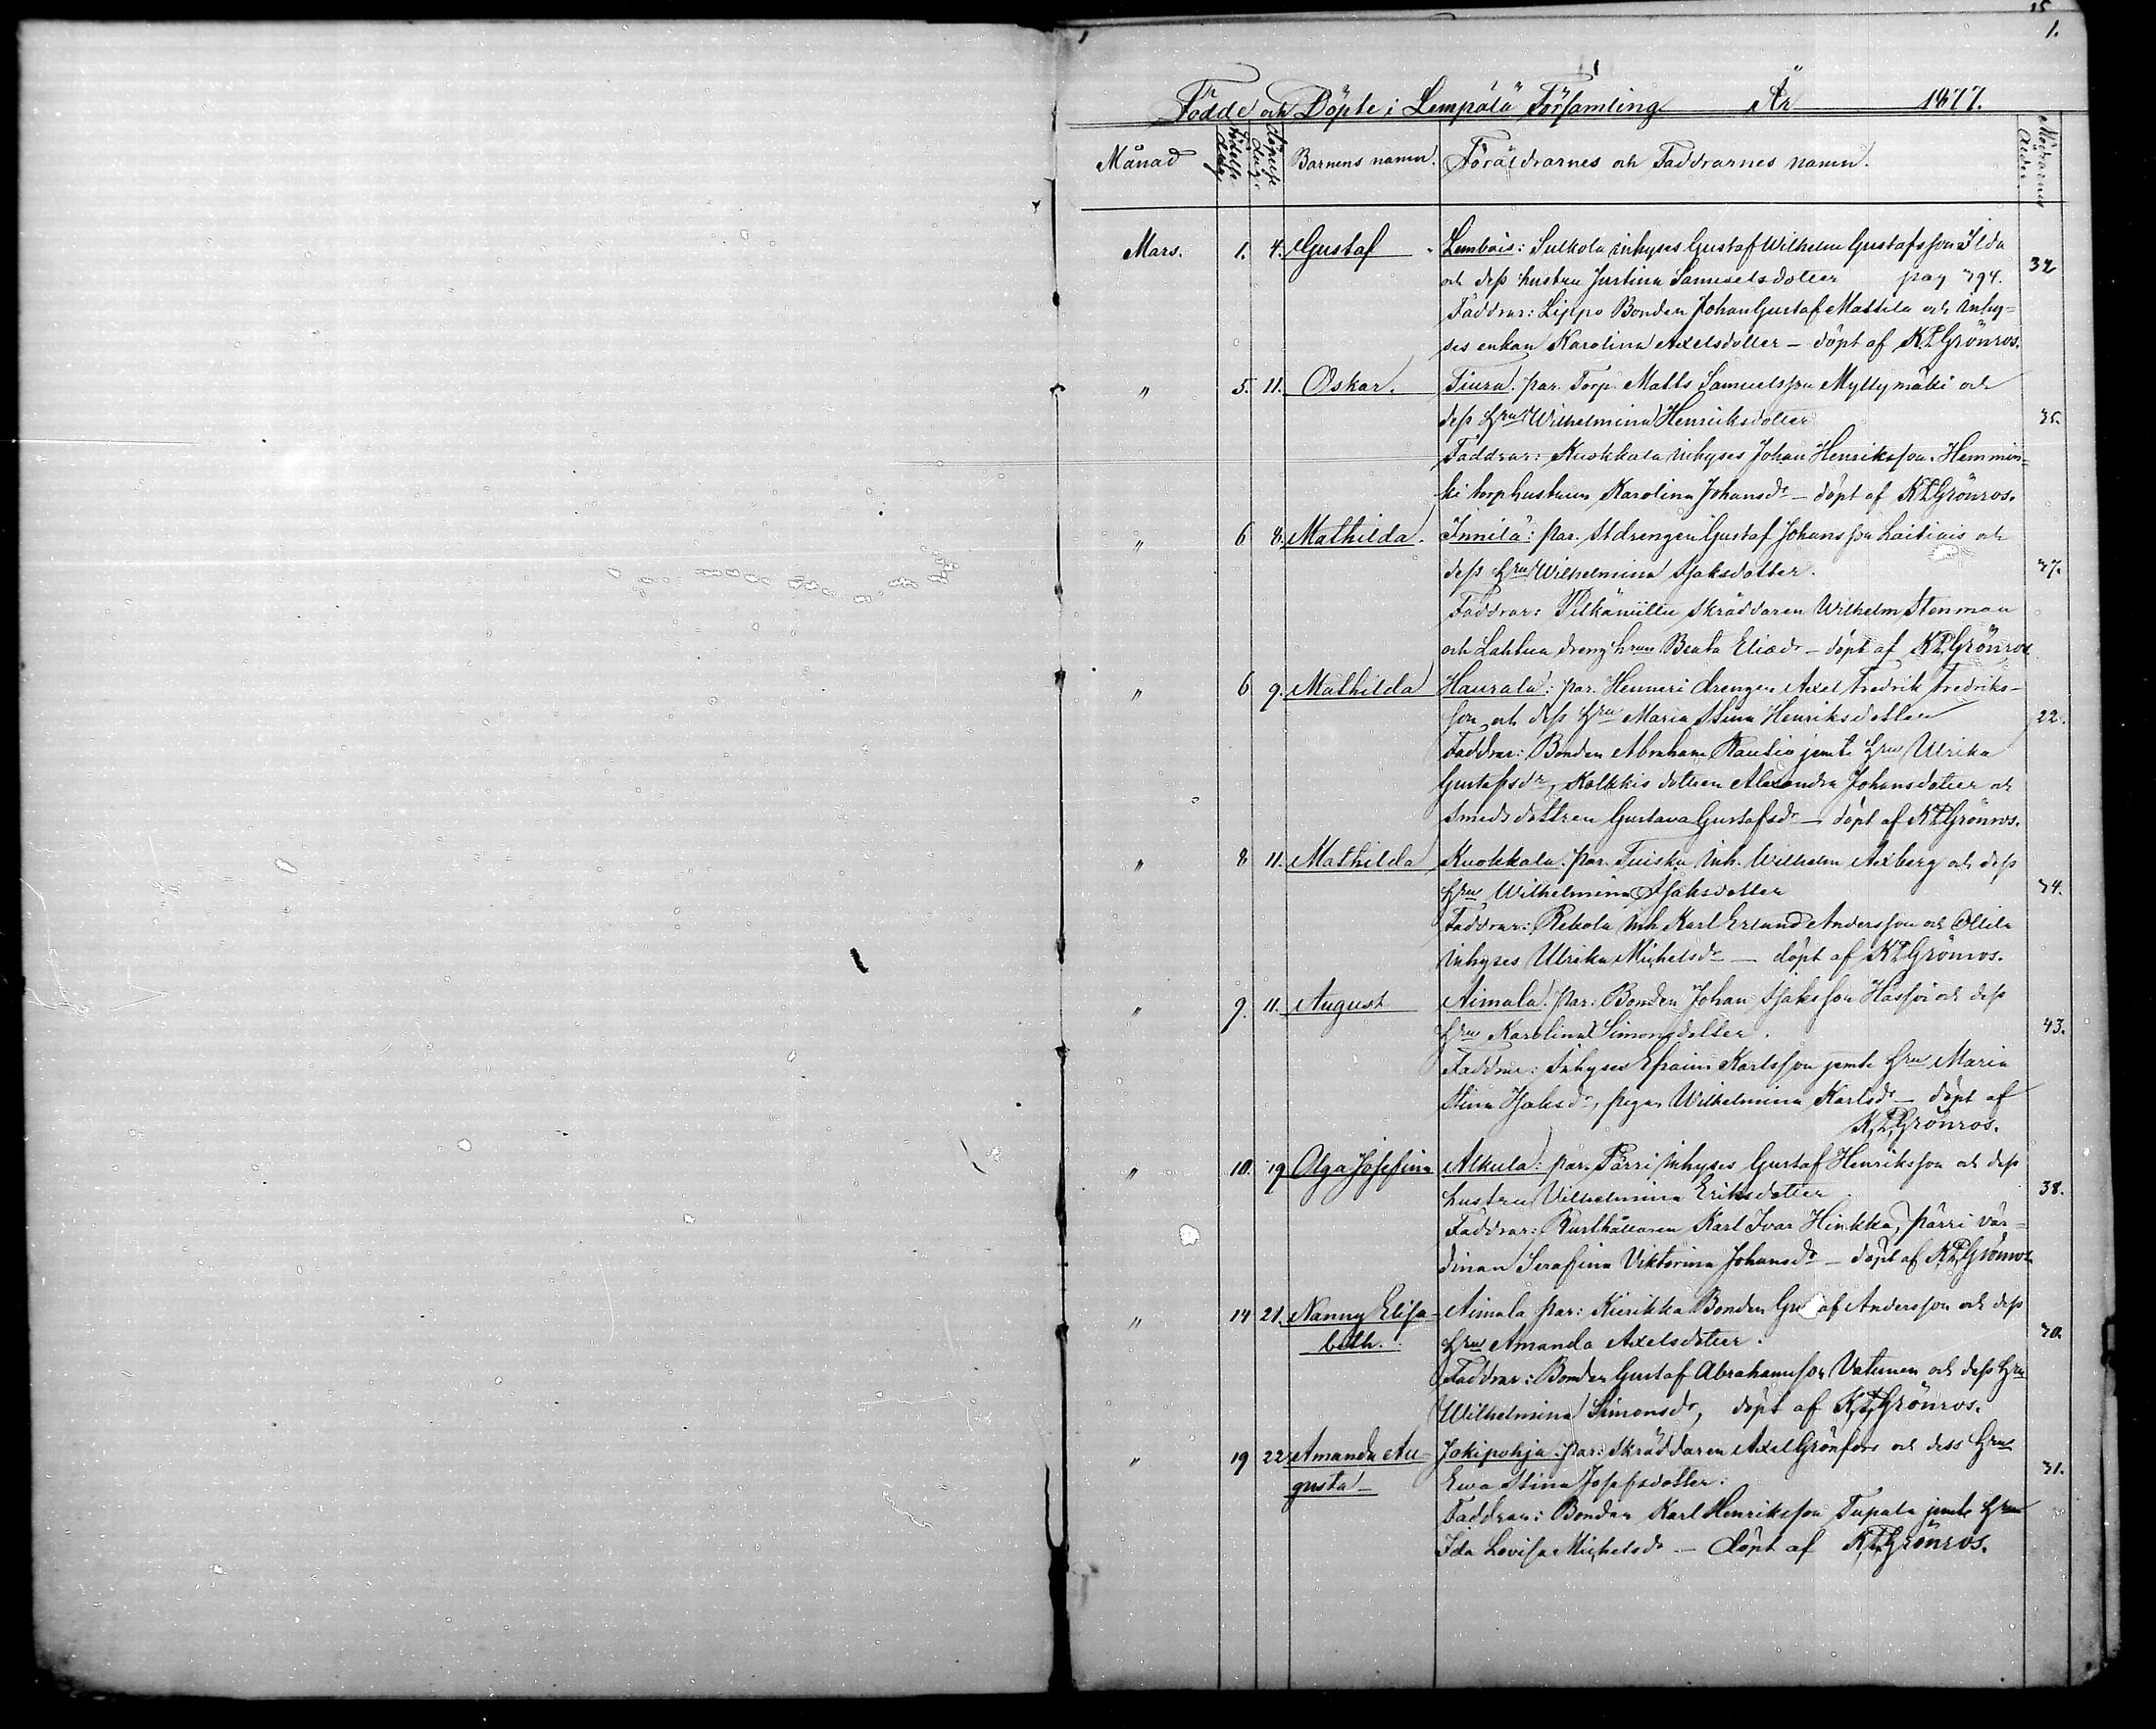 15
1.
Födde och Döpte i Lempälä Församling År 1877.
Månad födelse dag döpelse dag. Barnens namn. Föräldrarnes och Faddrarnes namn. Mödrarnes Ålder
Mars. 1. 4. Gustaf Lembois: Sulkola inhyses Gustaf Wilhelm Gustafsson
och dess hustru Justina Samuelsdotter pag 394. 32
Faddrar: Lippo Bonden Johan Gustaf Mattila och inhy=
ses enkan Karolina Axelsdotter – döpt af K.P. Grönros.
" 5. 11. Oskar. par. Torp. Matts Samuelsson Myllymäki och
dess Hru Wilhelmina Henriksdotter 35.
Faddrar: Kuokkala inhyses Johan Henriksson. Hemmin=
ki torphustrun Karolina Johansdr – döpt af K.P. Grönros.
" 6 8. Mathilda. Innilä: par. Stdrengen Gustaf Johansson Laitiais och
dess Hru Wilhelmina Isaksdotter. 37.
Faddrar: skräddaren Wilhelm Stenman
och dreng hrun Beata Eliædr – döpt af K.P. Grönros
" 6 9. Mathilda Haurala: par. Henneri drengen Axel Fredrik Fredriks=
son och dess Hru Maria Stina Henriksdotter 22.
Faddrar: Bonden Abraham Rautio jemte Hru Ulrika
Gustafsdr, dottren Alexandra Johansdotter och
smeds dottren Gustava Gustafsdr – döpt af K.P. Grönros.
" 8 11. Mathilda Kuokkala. par. Tuisku Inh. Wilhelm Axberg och dess
Hru Wilhelmina Isaksdotter 34.
Faddrar: Rekola Inh. Karl Erland Andersson och Ollila
Inhyses Ulrika Michelsdr – döpt af K.P. Grönros.
" 9. 11. August Aimala. par: Bonden Johan Isaksson Hassi och dess
Hru Karolina Simonsdotter. 43.
Faddrar: Inhyses Efraim Karlsson jemte Hru Maria
Stina Isaksdr, pigan Wilhelmina Karlsdr – döpt af
K.P. Grönros.
" 10. 19 Olga Josefina Alkula: par. Pärri Inhyses Gustaf Henriksson och dess
hustru Vilhelmina Eriksdotter 38.
Faddrar: Rusthållaren Karl Ivar Hinkka, Pärri vär=
dinan Serafina Viktorina Johansdr – döpt af K.P. Grönros
" 14 21. Nanny Elisa= Aimala par: Kierikka Bonden Gustaf Andersson och dess
beth. Hru Amanda Axelsdotter. 30.
Faddrar: Bonden Gustaf Abrahamsson Vatunen och dess Hru
Wilhelmina Simonsdr, döpt af K.P. Grönros.
" 19 22 Amanda Au= Jokipohja: par: Skräddaren Axel Grönfors och dess Hru
gusta Ewa Stina Josefsdotter. 31.
Faddrar: Bonden Karl Henriksson Tupala jemte Hru
Ida Lovisa Michelsdr – döpt af K.P. Grönros.